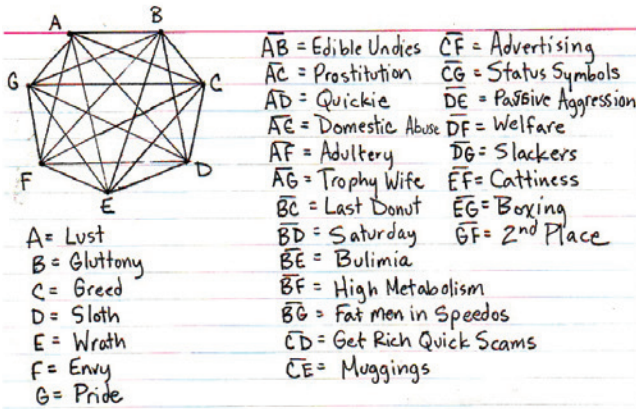 A
B
G
C
F
D
E
A = Lust
B = Gluttony
C = Greed
D = Sloth
E = Wrath
F = Envy
G = Pride
A̅B̅ = Edible Undies
A̅C̅ = Prostitution
A̅D̅ = Quickie
A̅E̅ = Domestic Abuse
A̅F̅ = Adultery
A̅G̅ = Trophy Wife
B̅C̅ = Last Donut
B̅D̅ = Saturday
B̅E̅ = Bulimia
B̅F̅ = High Metabolism
B̅G̅ = Fat men in Speedos
C̅D̅ = Get Rich Quick Scams
C̅E̅ = Muggings
C̅F̅ = Advertising
C̅G̅ = Status Symbols
D̅E̅ = Passive Aggression
D̅F̅ = Welfare
D̅G̅ = Slackers
E̅F̅ = Cattiness
E̅G̅ = Boxing
G̅F̅ = 2nd Place